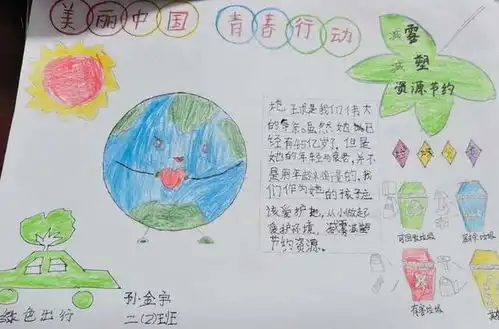 美丽中国 青春行动
减霾
减塑
资源节约
地球是我们伟大
的母亲。虽然她已
经有45亿岁了,但是
她的年轻与衰老,并不
是用年龄来衡量的,我
们作为她的孩子应
该爱护她,从小做起
爱护环境,
节约资源。
可回收垃圾
有害垃圾
绿色出行
孙金宇
二(2)班